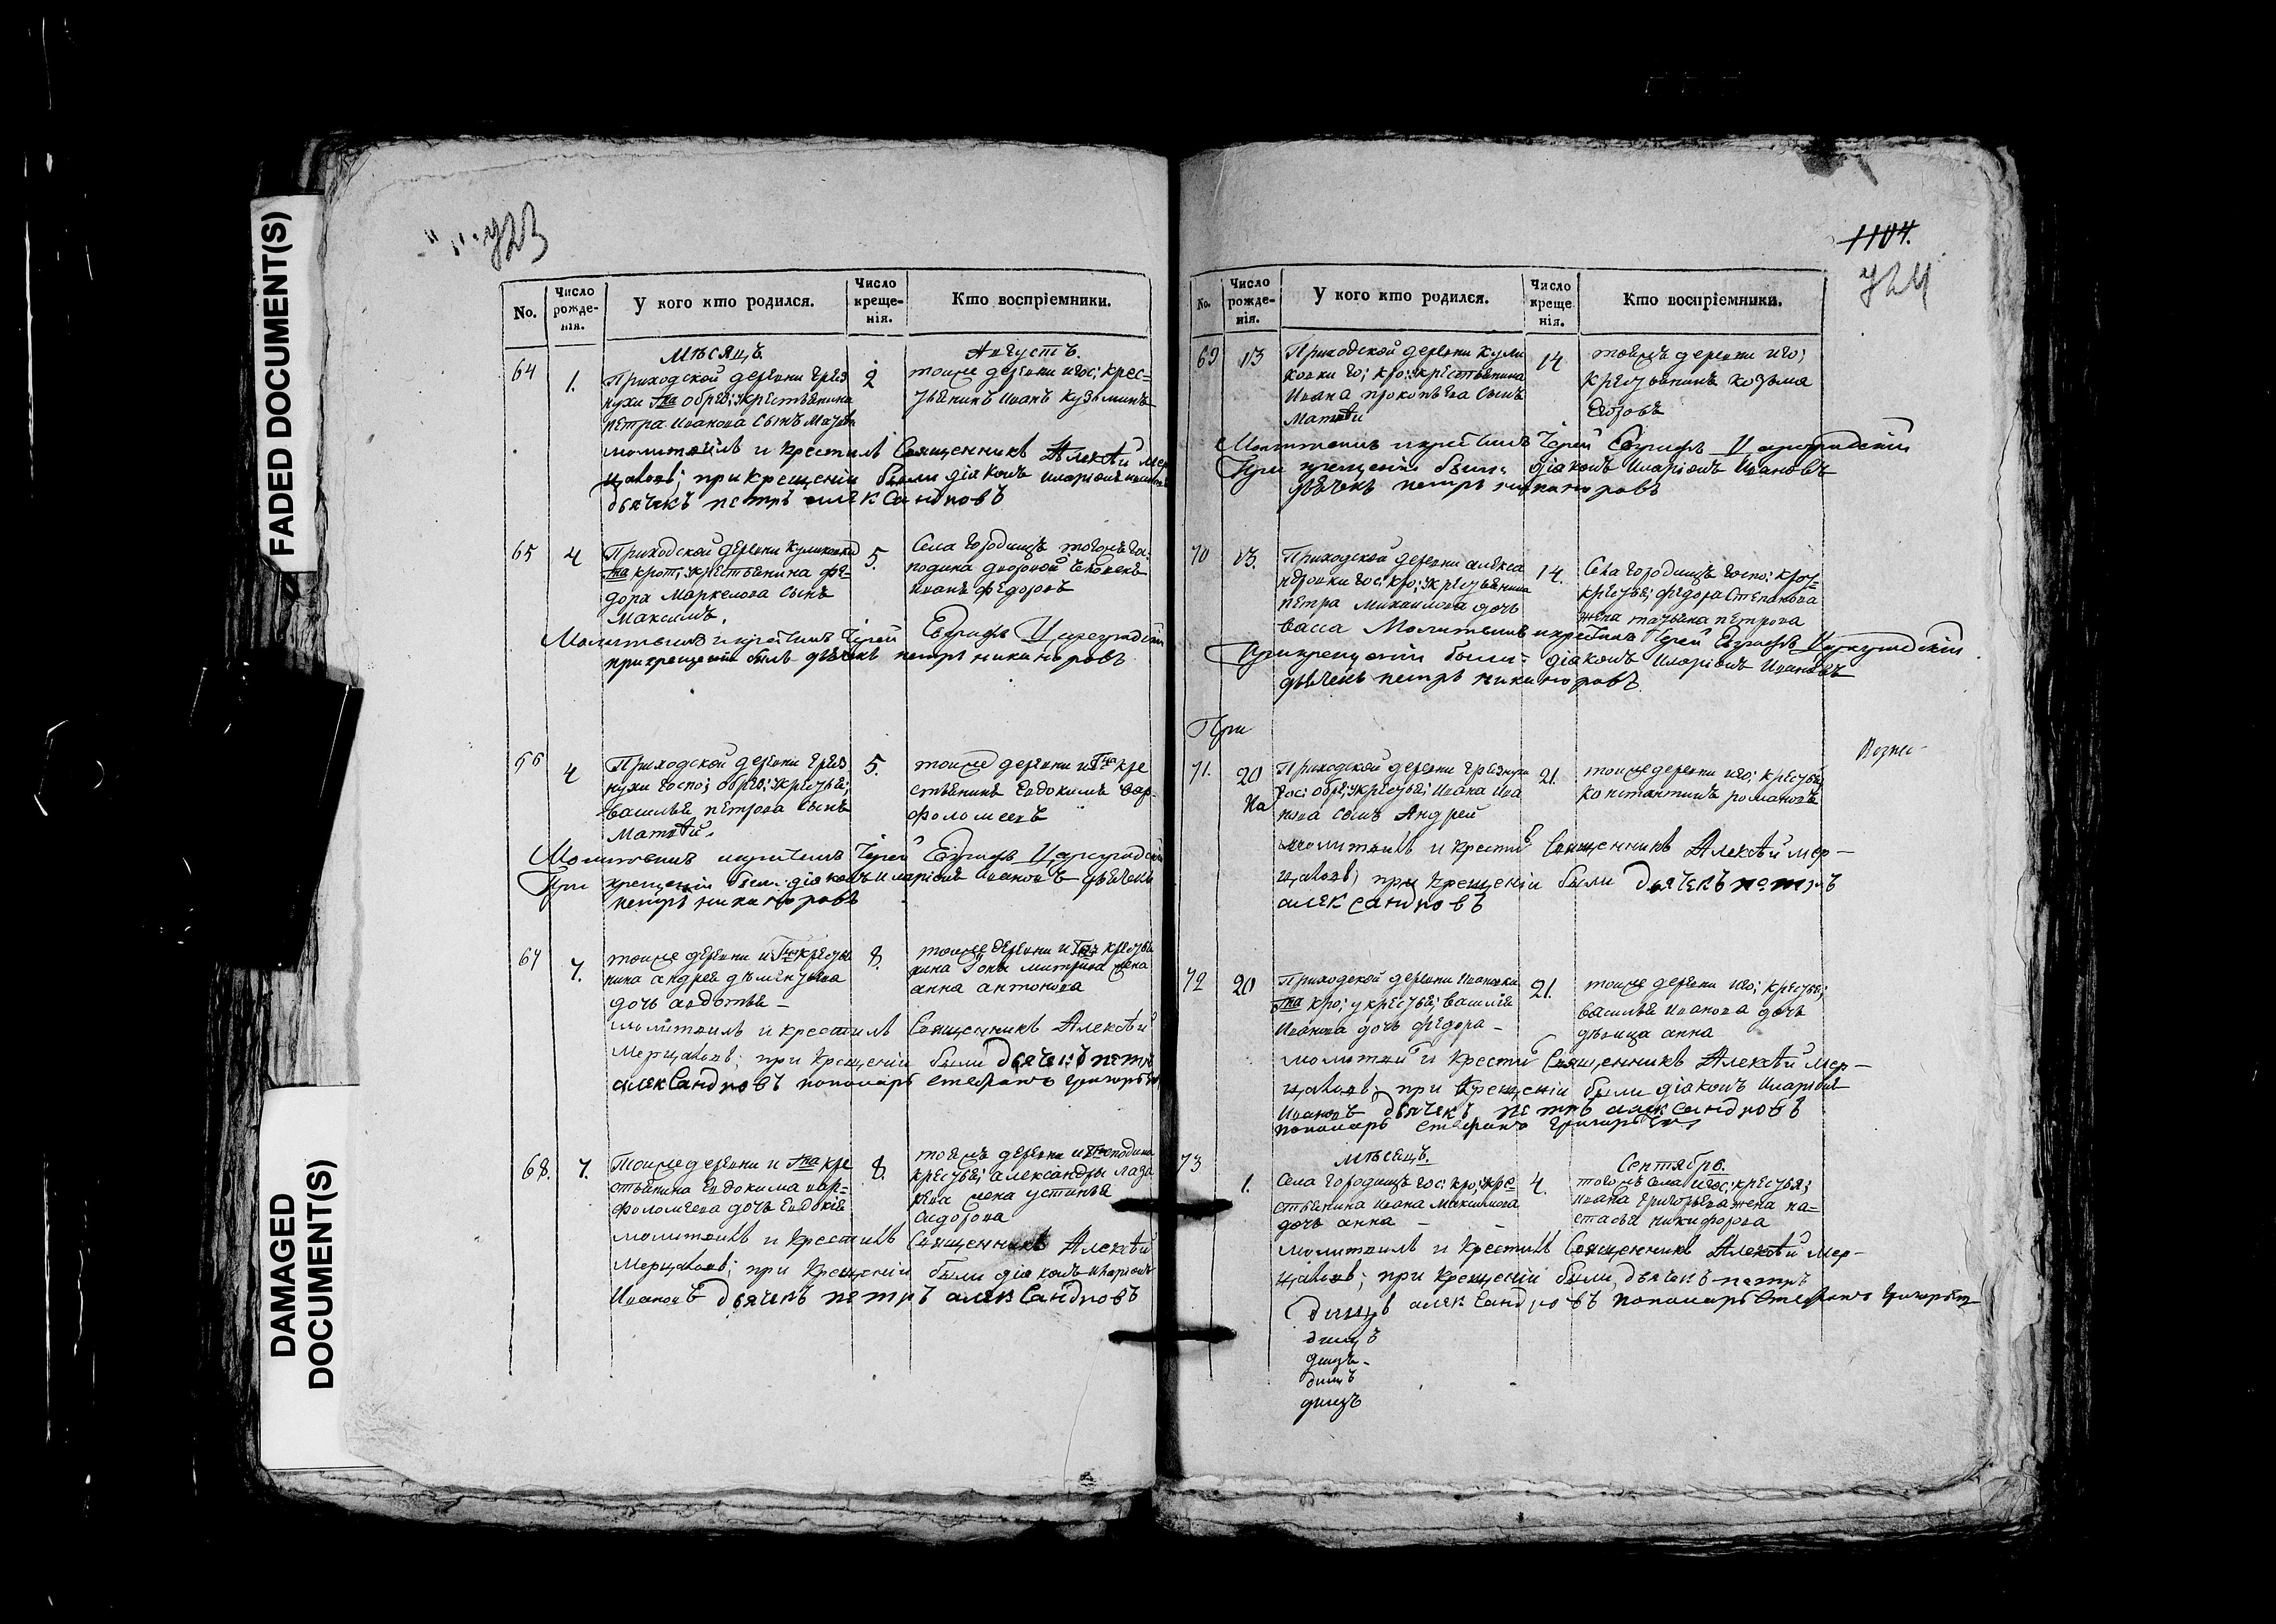 FADED DOCUMENT(S)
DAMAGED
DOCUMENT(S)
723
No.
Число рожде-нія.
У кого кто родился.
Число креще-нія.
Кто воспріемники.
Мѣсяцъ
Августъ.
64
1.
Приходской деревни Гряз
нухи Гна Обрез; крестьянина
петра Иванова сынъ Матвей
2
тоиже деревни и гос; крес=
тьянинъ Иванъ Кузьминъ
молитвилъ и крестилъ Священникъ Алексѣй Мер
цаловъ; при крещеніи были діаконъ иларіонъ ивановъ
дьячекъ петръ александровъ
65
4
Приходской деревни Куликовки
Гна крот; крестьянина фе=
дора Маркелова сынъ
Максимъ.
5.
Села Городищъ тогожъ го=
подина дворовой человекъ
иванъ федоровъ
Молитвилъ и крестилъ Іерей Евграфъ Цареградскій
при крещеніи былъ дьячекъ петръ никаноровъ
66
4
Приходской деревни Гряз
нухи госпо; обрез; крестья;
василья петрова сынъ
Матвѣй.
5.
тоиже деревни и Гна кре
стьянинъ Евдокимъ вар=
фоломеевъ
Молитвилъ и крестилъ Іерей Евграфъ Цареградскій
При крещеніи были: діаконъ иларіонъ Ивановъ дьячекъ
петръ никаноровъ
67
7.
тоиже деревни и Гна крестья
нина андрея дементьева
дочь авдотья —
8.
тоиже деревни и Гна крестья
нина Ѳоки митрива жена
анна антонова
молитвилъ и крестилъ Священникъ Алексѣй
Мерцаловъ; при крещеніи были дьячекъ петръ
александровъ пономарь стефанъ григорьевъ
68.
7.
Тоиже деревни и Гна кре
стьянина Евдокима вар=
фоломеева дочь Евдокія
8.
тоежъ деревни и Господина
крестья; александры лаза
рева жена устинья
сидорова
молитвилъ и крестилъ Священникъ Алексѣй
Мерцаловъ; при крещеніи были діаконъ иларіонъ
Ивановъ дьячекъ петръ александровъ
1104.
724
No.
Число рожде-нія.
У кого кто родился.
Число креще-нія.
Кто воспріемники.
69
13
Приходской деревни Кули
ковки го; кро; крестьянина
Ивана прокопьева сынъ
Матвѣи
14
тоежъ деревни и го;
крестьянинъ козьма
Молитвилъ и крестилъ Іерей Евграфъ Цареградскій
При крещеніи были: діаконъ Иларіонъ Ивановъ
дьячекъ петръ никаноровъ
70
13.
Приходской деревни алекса
ндровки гос; кро; крестьянина
петра Михаилова дочь
васса
14.
Села городищъ госпо; крот=
крестья; федора Степанова
жена татьяна петрова
Молитвилъ и крестилъ Іерей Евграфъ Цареградскій
При крещеніи были: діаконъ Иларіонъ Ивановъ
дьячекъ петръ никаноровъ.
При
71.
20
На
Приходской деревни Грязнухи
гос; обре; крестья; Ивана Ива
нова сынъ Андрей
21.
тоиже деревни и го; крестья;
константинъ романовъ
молитвилъ и крестилъ Священникъ Алексѣй мер—
цаловъ; при крещеніи были дьячекъ петръ
александровъ
72
20
Приходской деревни Ивановки
Гна кро; у крестья; василія
Иванова дочь федора —
21.
тоиже деревни и го; крестья;
василья иванова дочь
дѣвица анна
молитвилъ и крестилъ Священникъ Алексѣй Мер—
цаловъ; при крещеніи были діаконъ Иларіонъ
Ивановъ дьячекъ петръ александровъ
пономарь стефанъ григорьевъ
Мѣсяцъ.
Сентябрь.
73
1.
Села Городищъ гос; кро; кре
стьянина Ивана Максимова
дочь анна —
4.
тогожъ села и гос; крестья;
ивана григорьева жена на=
стасья никифорова
молитвилъ и крестилъ Священникъ Алексѣй Мер—
цаловъ; при крещеніи были дьячекъ петръ
александровъ пономарь Стефанъ григорьевъ